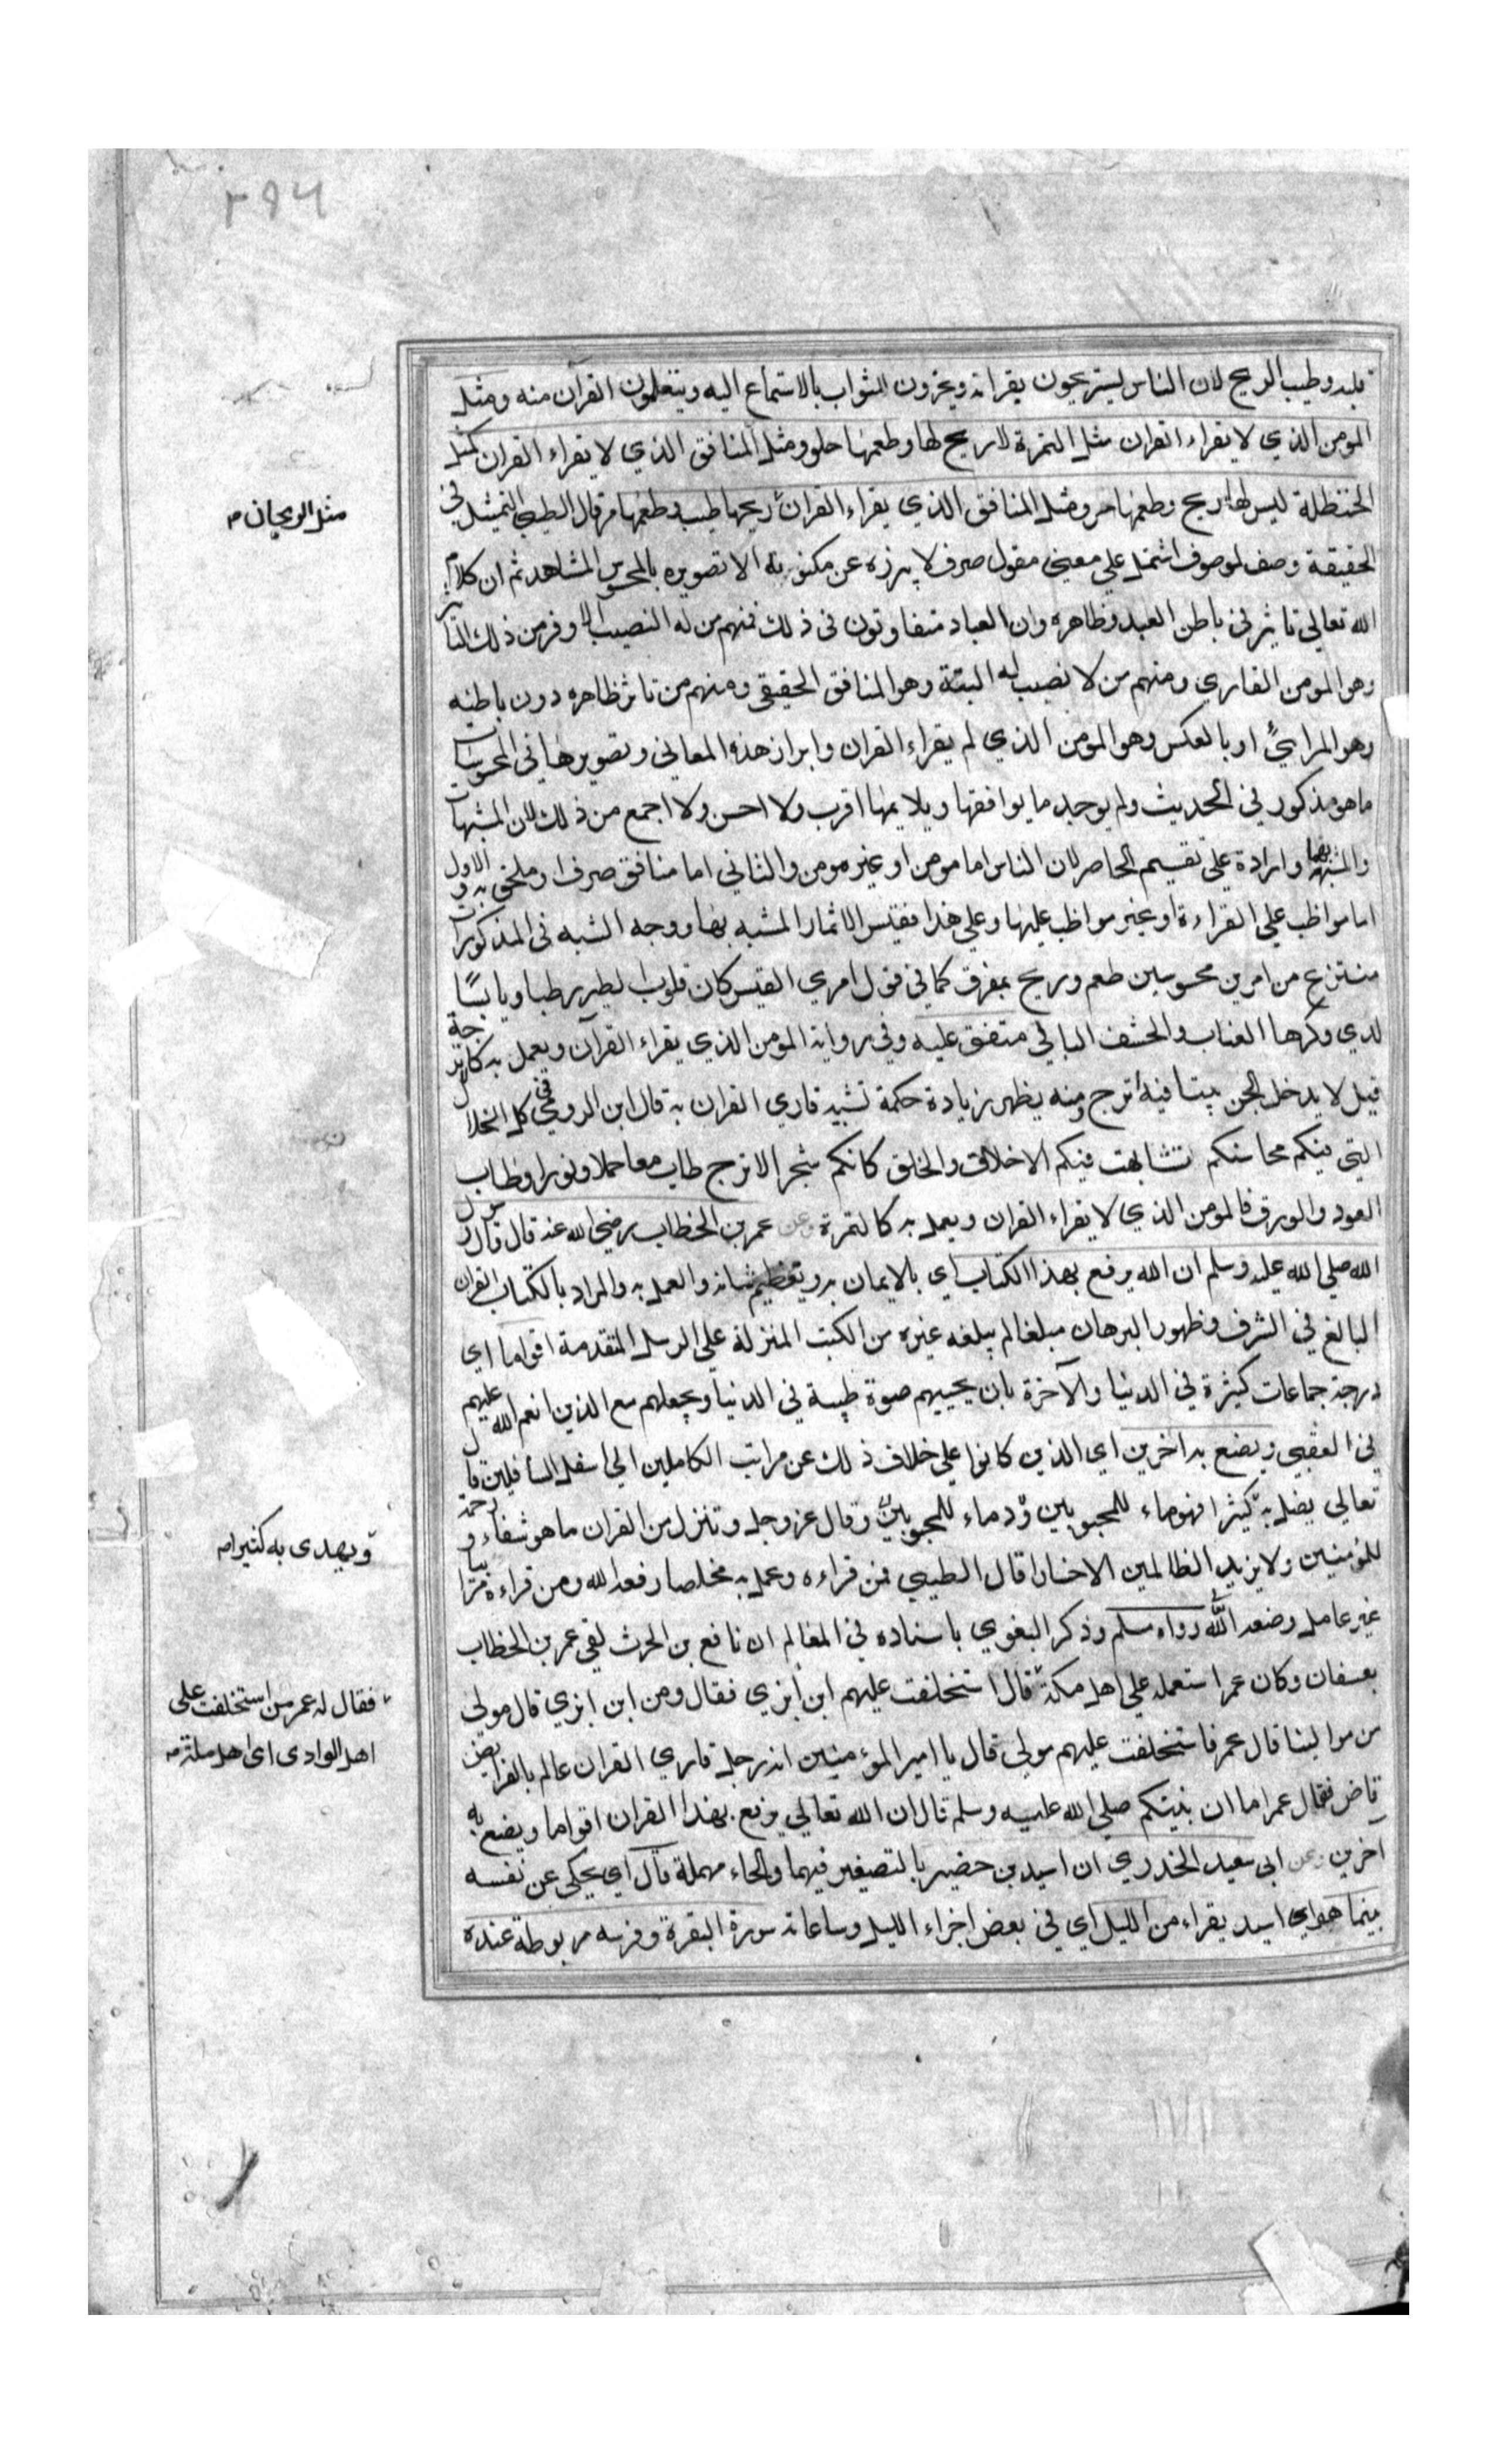 ٢٩٤
قلبه وطيب الريح لان الناس يستريحون بقراته ويحزون الثواب بالاستماع اليه ويتعلمون القرآن منه ومثل
المومن الذي لا يقراء القران مثل التمرة لا ريح لها وطعمها حلو ومثل المنافق الذي لا يقراء القران كمثل
الحنظلة ليس لها ريح وطعمها مر ومثل المنافق الذي يقراء القران ريحها طيب وطعمها مر قال الطيبي التمثيل في
مثل الريحان م
الحقيقة وصف لموصوف اشتمل علي معني معقول صرف لا يبرزه عن مكنونه الا تصويره بالمحسوس المشاهد ثم ان كلام
الله تعالي تاثير في باطن العبد وظاهره وان العباد متفاوتون في ذلك فمنهم من له النصيب الاوفر من ذلك التاثير
وهو المومن القاري ومنهم من لا نصيب له البتة وهو المنافق الحقيقي ومنهم من تاثر ظاهره دون باطنه
وهو المرايي او بالعكس وهو المومن الذي لم يقراء القران وابراز هذه المعاني وتصويرها في المحسوسات
ما هو مذكور في الحديث ولم يوجد ما يوافقها ويلايمها اقرب ولا احسن ولا اجمع من ذلك لان المشبهات
والمشبه بها واردة علي تقسيم الحاصر لان الناس اما مومن او غير مومن والثاني اما منافق صرف او ملحق به والاول
اما مواظب علي القراءة او غير مواظب عليها وعلي هذا فقس الاثمار المشبه بها ووجه الشبه في المذكورات
منتزع من امرين محسوسين طعم وريح بمفرق كما في قول امري القيس كان قلوب الطير رطبا ويابسًا
لدي وكرها العناب والحشف البالي متفق عليه وفي رواية المومن الذي يقراء القرآن ويعمل به كالاترجة
قيل لا يدخل الجن بيتا فيه أترج ومنه يظهر زيادة حكمة تشبيه قاري القران به قال ابن الرومي في كل الخلال
التي فيكم محاسنكم تشابهت فيكم الاخلاق والخلق كانكم شجر الاترج طاب معا حملا ونورا وطاب
العود والورق فالمومن الذي لا يقراء القران ويعمل به كالتمرة وعن عمر بن الخطاب رضي الله عنه قال قال رسول
الله صلي الله عليه وسلم ان الله يرفع بهذا الكتاب اي بالايمان به وتعظيم شانه والعمل به والمراد بالكتاب القران
البالغ في الشرف وظهور البرهان مبلغا لم يبلغه غيره من الكتب المنزلة علي الرسل المتقدمة اقواما اي
درجة جماعات كثيرة في الدنيا والآخرة بان يحييهم حيوة طيبة في الدنيا ويجعلهم مع الذين انعم الله عليهم
في العقبي ويضع به اخرين اي الذين كانوا علي خلاف ذلك عن مراتب الكاملين الي اسفل السافلين قال
تعالي يضل به كثيرا فهو ماء للمحبوبين ودماء للمحجوبين وقال عز وجل وتنزل من القران ما هو شفاء ورحمة
ويهدى به كثيرا م
للمؤمنين ولا يزيد الظالمين الا خسارا قال الطيبي فمن قراءه وعمل به مخلصا رفعه الله ومن قراءة مرائيا
غير عامل وضعه الله رواه مسلم وذكر البغوي باسناده في المعالم ان نافع بن الحرث لقي عمر بن الخطاب
بعسفان وكان عمر استعمله علي اهل مكة قال استخلفت عليهم ابن أبزي فقال ومن ابن ابزي قال مولي
فقال له عمر من استخلفت على
اهل الوادى اى اهل مكة م
من موالينا قال عمر فاستخلفت عليهم مولي قال يا امير المؤمنين انه رجل قاري القران عالم بالفرايض
قاض فقال عمر اما ان نبيكم صلي الله عليه وسلم قال ان الله تعالي يرفع بهذا القران اقواما ويضع به
آخرين وعن ابي سعيد الخدري ان اسيد بن حضير بالتصغير فيهما والحاء مهملة قال اي يحكي عن نفسه
بينما هو اي اسيد يقراء من الليل اي في بعض اجزاء الليل وساعاته سورة البقرة وفرسه مربوطة عنده